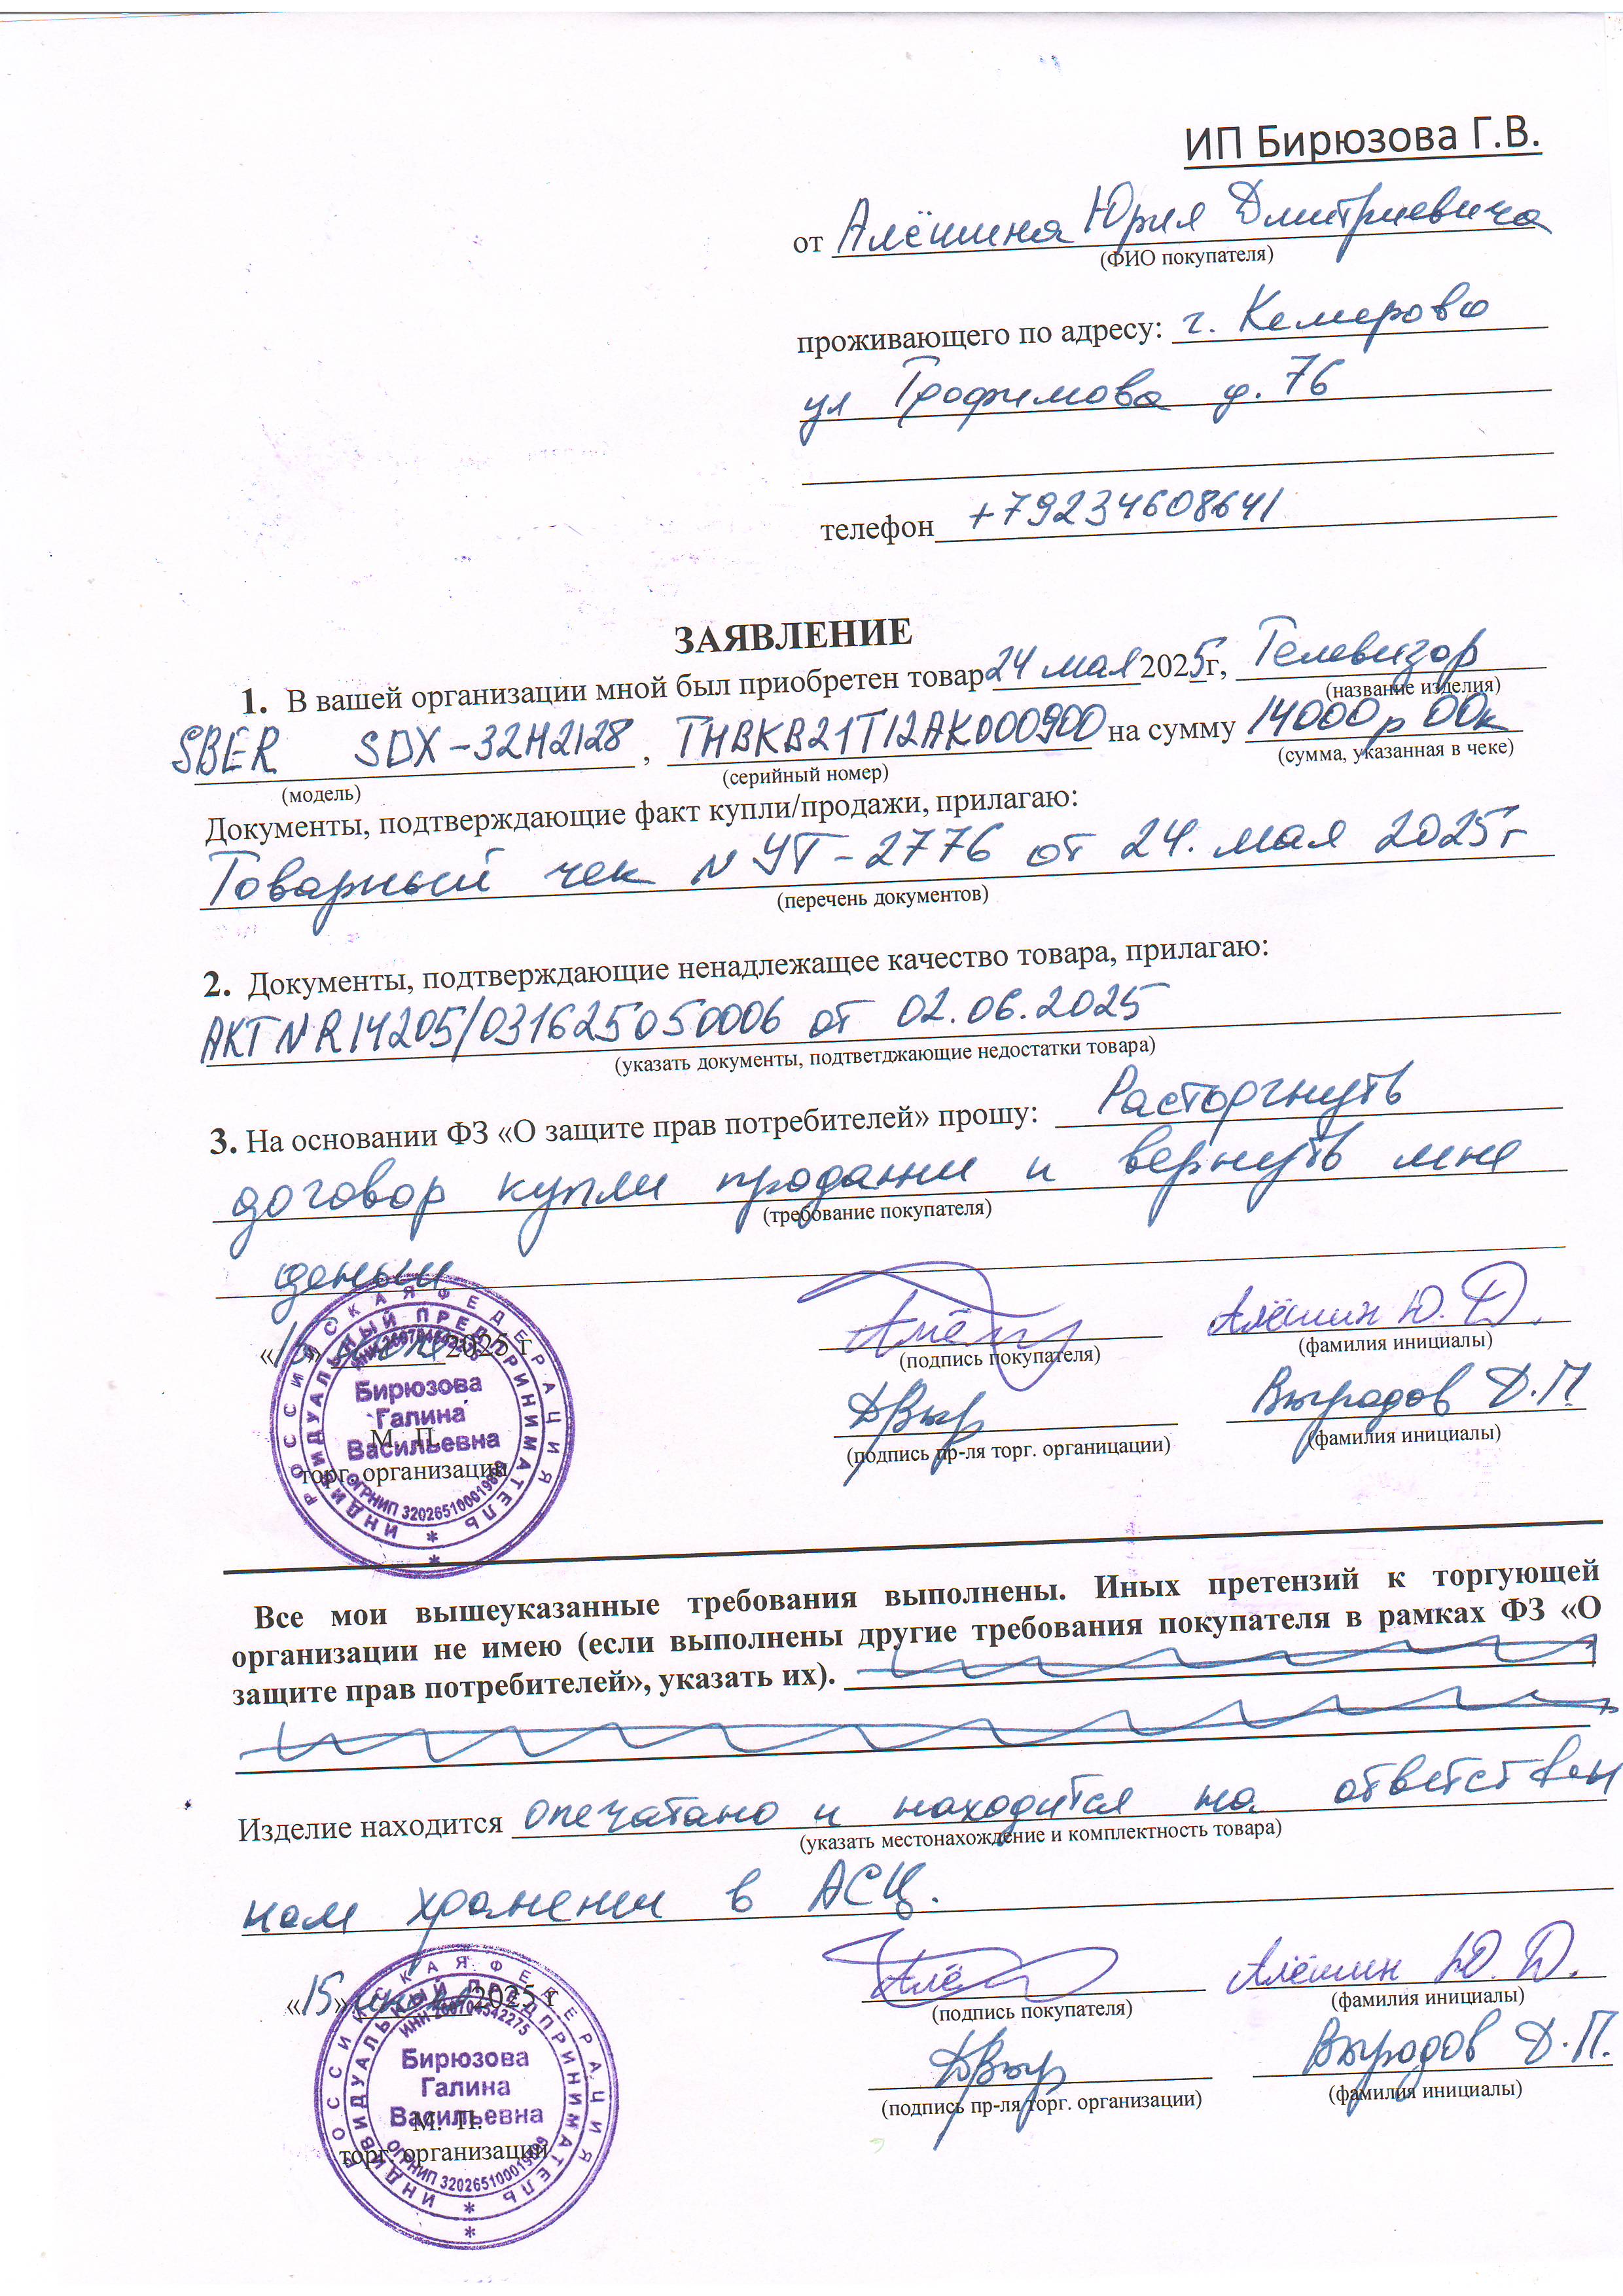 ИП Бирюзова Г.В.
от Алёшина Юрия Дмитриевича
(ФИО покупателя)
проживающего по адресу: г. Кемерово
ул Трофимова д. 76
телефон +79234608641
ЗАЯВЛЕНИЕ
1. В вашей организации мной был приобретен товар 24 мая 2025г, Телевизор
(название изделия)
SBER SDX-32H2128, THBKB21T12AK000900 на сумму 14000р 00к
(модель) (серийный номер) (сумма, указанная в чеке)
Документы, подтверждающие факт купли/продажи, прилагаю:
Товарный чек N УТ-2776 от 24. мая 2025г
(перечень документов)
2. Документы, подтверждающие ненадлежащее качество товара, прилагаю:
АКТ N R14205/031625050006 от 02.06.2025
(указать документы, подтветджающие недостатки товара)
3. На основании ФЗ «О защите прав потребителей» прошу: Расторгнуть
договор купли продажи и вернуть мне
(требование покупателя)
деньги
Алё Алёшин Ю. Д.
«15» 2025 г (подпись покупателя) (фамилия инициалы)
ДВыр Выродов Д.П
(подпись пр-ля торг. органицации) (фамилия инициалы)
М. П.
торг. организации
РОССИЙСКАЯ ФЕДЕРАЦИЯ
ИНДИВИДУАЛЬНЫЙ ПРЕДПРИНИМАТЕЛЬ
Бирюзова
Галина
Васильевна
Все мои вышеуказанные требования выполнены. Иных претензий к торгующей
организации не имею (если выполнены другие требования покупателя в рамках ФЗ «О
защите прав потребителей», указать их).
Изделие находится опечатано и находится на ответствен
(указать местонахождение и комплектность товара)
ном хранении в АСЦ.
Алё Алёшин Ю. Д.
«15» 2025 г (подпись покупателя) (фамилия инициалы)
ДВыр Выродов Д.П.
(подпись пр-ля торг. организации) (фамилия инициалы)
М. П.
торг. организации
РОССИЙСКАЯ ФЕДЕРАЦИЯ
ИНДИВИДУАЛЬНЫЙ ПРЕДПРИНИМАТЕЛЬ
Бирюзова
Галина
Васильевна